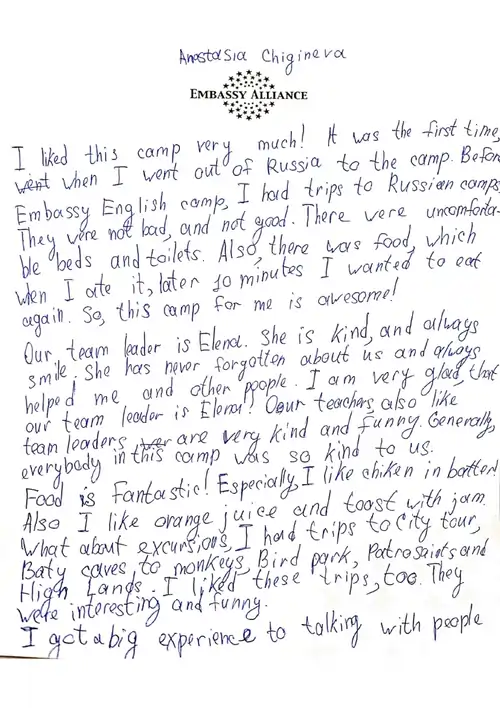 Anastasia Chigineva
EMBASSY ALLIANCE
I liked this camp very much! It was the first time,
went when I went out of Russia to the camp. Before
Embassy English camp, I had trips to Russian camps.
They were not bad, and not good. There were uncomforta-
ble beds and toilets. Also, there was food, which
when I ate it, later 10 minutes I wanted to eat
again. So, this camp for me is awesome!
Our team leader is Elena. She is kind, and always
smile. She has never forgotten about us and always
helped me and other people. I am very glad, that
our team leader is Elena! Our teachers also like
team leaders, are very kind and funny. Generally,
everybody in this camp was so kind to us.
Food is Fantastic! Especially, I like chiken in batter!
Also I like orange juice and toost with jam.
What about excursions, I had trips to City tour,
Baty caves to monkeys, Bird park, Patrosaints and
High Lands. I liked these trips, too. They
were interesting and funny.
I got a big experience to talking with people